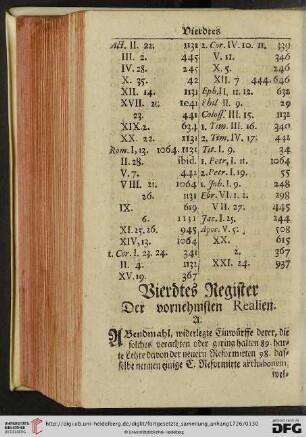 Vierdtes
Act. II. 22. 1131
III. 2. 445
IV. 28. 245
X. 35. 42
XII. 14. 1131
XVII. 28. 1041
23. 441
XIX. 2. 634
XX. 22. 1131
Rom. I, 13. 1064. 1131
II. 28. ibid.
V. 7. 442
VIII. 21. 1064
26.
IX. 619
6. 1131
XI. 25, 26. 945
XIV, 13. 1064
1. Cor. I. 23. 24. 341
II. 4. 1131
XV. 19. 367
2. Cor. IV. 10. 11. 339
V. 11. 346
X. 5. 246
XII. 7 444. 646
Eph. II. 11. 12. 632
Phil II. 9. 29
Coloss. III. 15. 1131
1. Tim. III. 16. 340
2. Tim. IV. 17. 432
Tit. I. 9. 34
1. Petr. I. 11. 1064
2. Petr. I. 19. 55
1. Joh. I. 9. 248
Ebr. VI. 1. 2. 298
VII. 27. 445
Jac. I. 25. 244
Apoc. V. 5. 508
XX. 615
2. 367
XXI. 24. 937
Vierdtes Register
Der vornehmsten Realien.
A.
ABendmahl, widerlegte Einwürffe derer, die
solches verachten oder gering halten 89. har-
te Lehre davon der neuern Reformirten 98. das-
selbe nennen einige C. Reformirte
wel-
http://digi.ub.uni-heidelberg.de/diglit/fortgesetzte_sammlung_anhang1726/0130
© Universitätsbibliothek Heidelberg
gefördert durch die
DFG